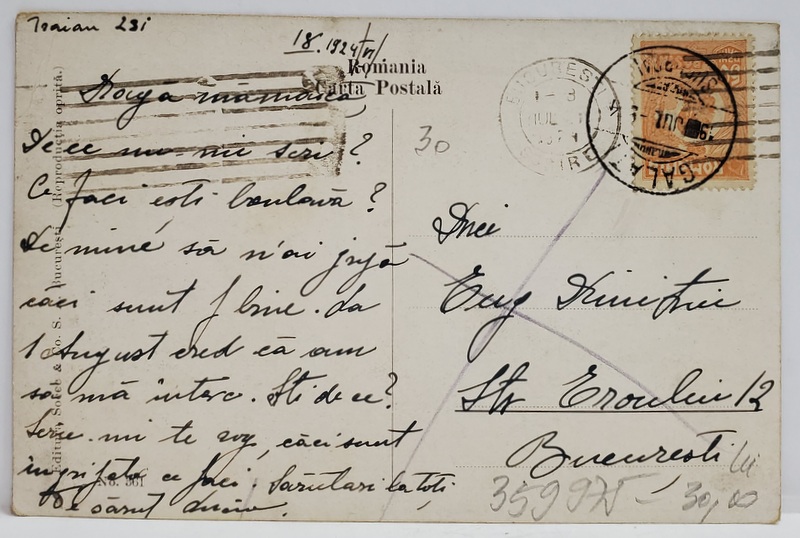 Traian 231
18. 1924/VI
România
Carta Postală
Dragă mămăică
De ce nu-mi scri?
Ce faci ești bolnavă?
De mine să n'ai grijă
căci sunt f bine. La
1 August cred că am
să mă întorc. Știi de ce?
Scrie-mi te rog, căci sunt
îngrijată ce faci. Sărutări la toți
Te sărut
No. 361
Editura Socec & Co. S. București. (Reproducția oprită.)
30
BUCUREȘTI
IUL
GALAȚI
JUL
Dnei
Eug
Str Eroului 12
București
359975 - 30,00
lei